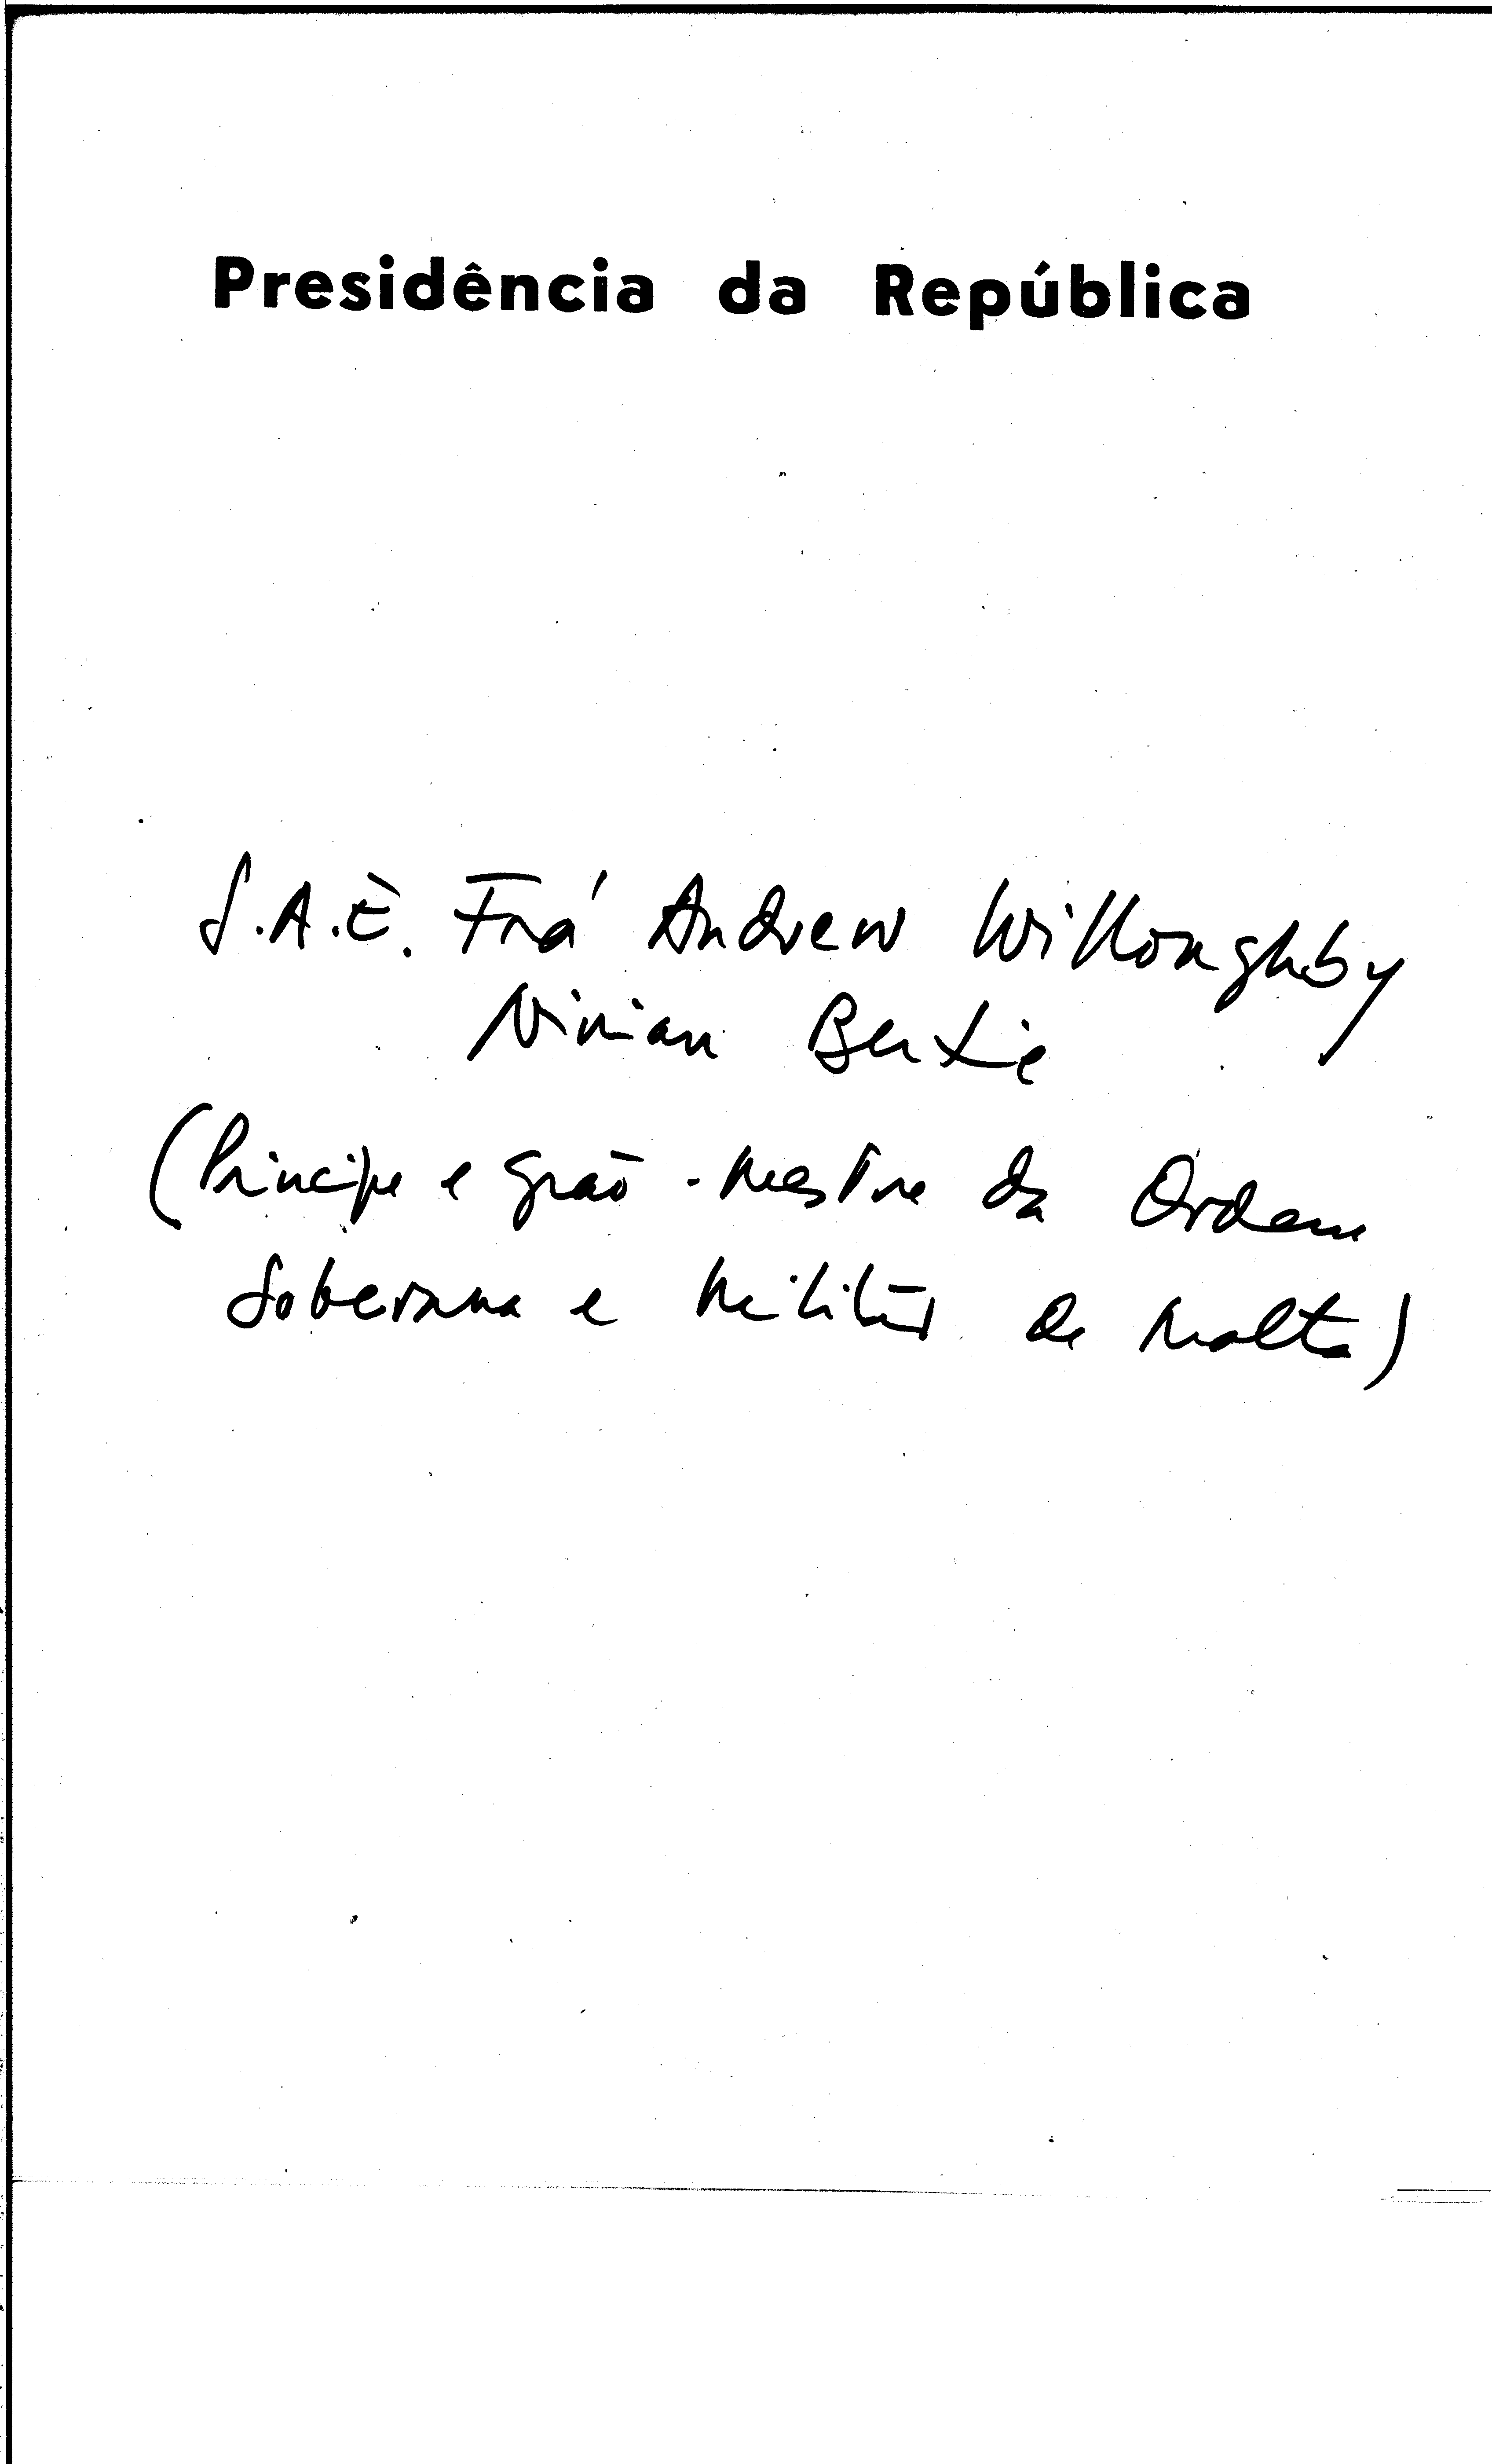 Presidência da República
S.A.E. Frá Andrew Willoughby
Ninian Bertie
(Principe e grão-mestre da Ordem
Soberana e Militar de Malta)